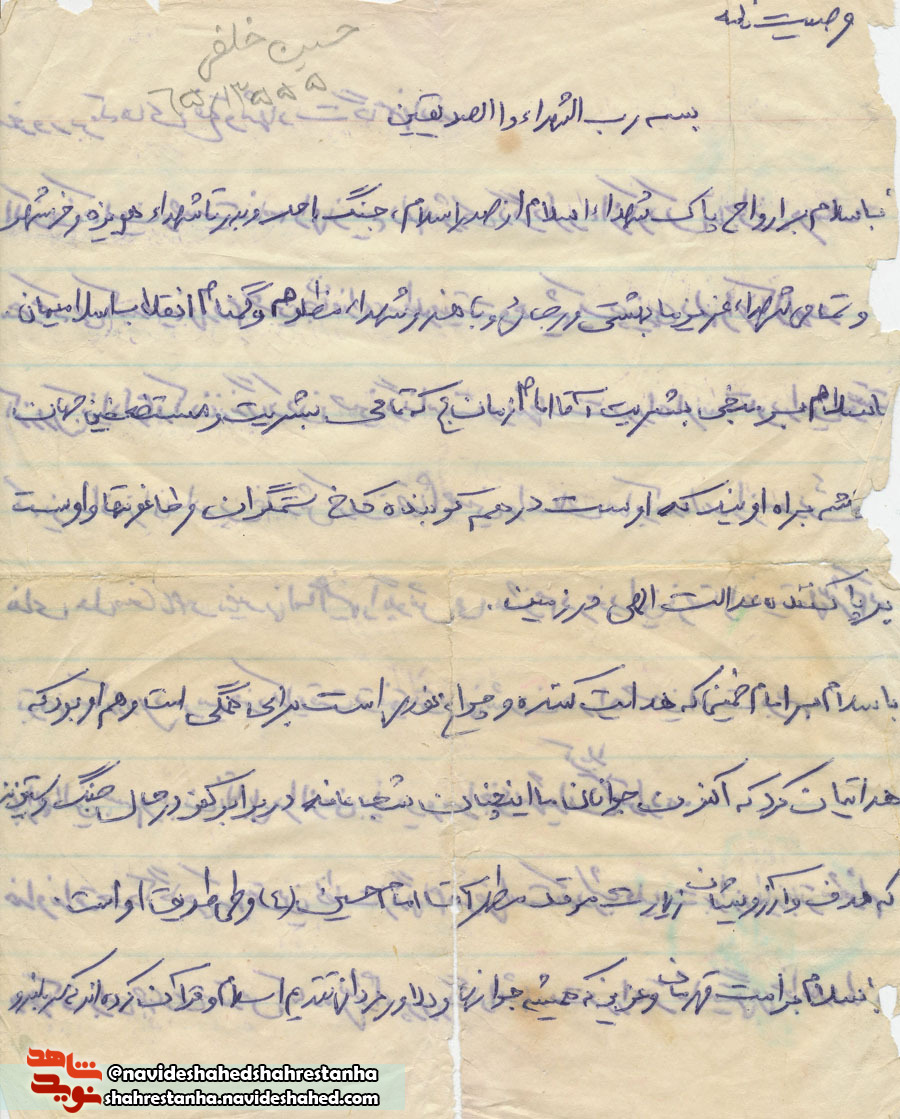 وصیت نامه
حسین خلفی
بسه رب الشهداء و الصدیقین
با سلام بر ارواح پاک شهداء اسلام از صدر اسلام، جنگ احد و بدر تا شهداء هویزه و خرمشهر
و تمامی شهداء عزیز ما بهشتی و رجائی و باهنر و شهداء مظلوم و گمنام انقلاب اسلامیمان.
با سلام بر منجی بشریت آقا امام زمان عج که تمامی بشریت و مستضعفین جهان
چشم براه اویند که اوست درهم کوبنده کاخ ستمگران و طاغوتها و اوست
برپا کننده عدالت الهی در زمین.
با سلام بر امام خمینی که هدایت کننده و چراغ نوری است برای همگی است و هم او بود که
هدایتمان کرد که اکنون جوانان ما اینچنین شجاعانه در برابر کفر در حال جنگ و ستیزند
که هدف و آرزویشان زیارت مرقد مطهر آقا امام حسین (ع) و طی طریق او است.
با سلام بر امت قهرمان و عزیز که همیشه جوانها و دلاور مردانی تقدیم اسلام و قرآن کرده‌اند که
شاهد
نوید
@navideshahedshahrestanha
shahrestanha.navideshahed.com